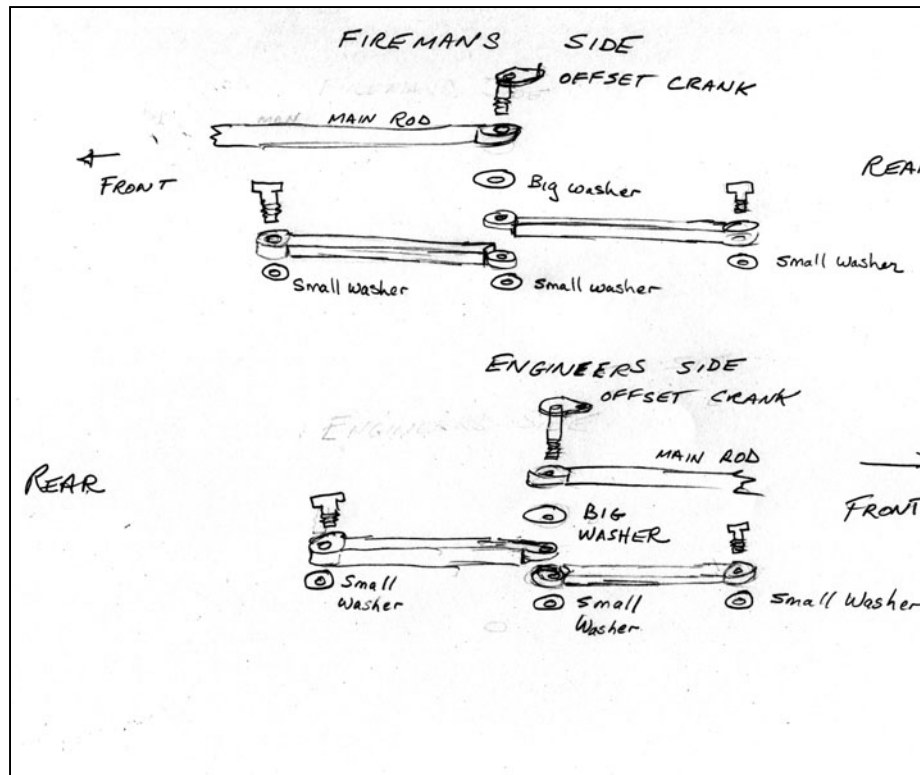 FIREMANS SIDE
OFFSET CRANK
MAIN ROD
FRONT
Big washer
REAR
Small washer
Small washer
Small washer
ENGINEERS SIDE
OFFSET CRANK
MAIN ROD
REAR
BIG
WASHER
FRONT
Small
Washer
Small
Washer
Small Washer